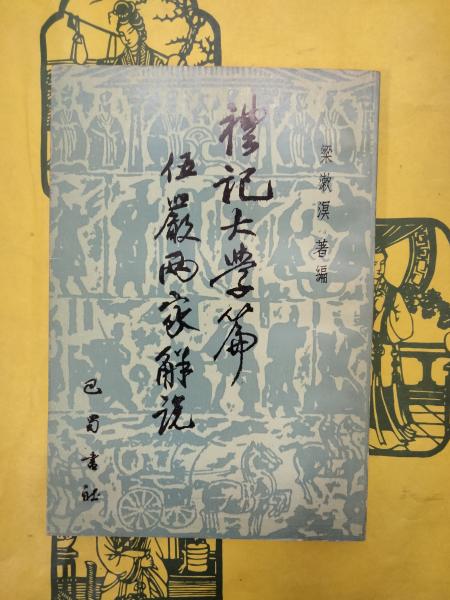 梁漱溟 著編
禮記大学篇
伍嚴两家解说
巴蜀書社